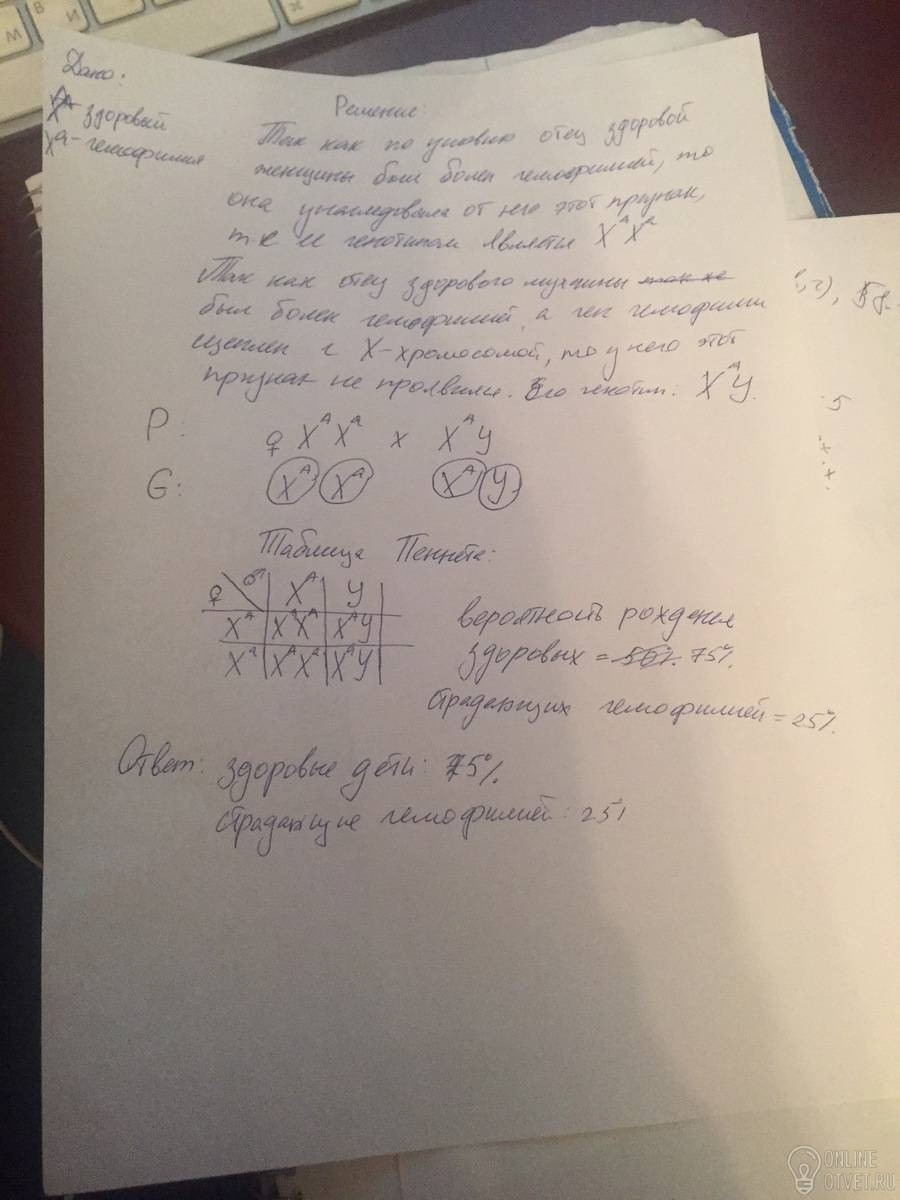 Дано:
X^A - здоровый
X^a - гемофилия
Решение:
Так как по условию отец здоровой
женщины был болен гемофилией, то
она унаследовала от него этот признак,
т.е её генотипом является X^A X^a
Так как отец здорового мужчины так же
был болен гемофилией, а ген гемофилии
сцеплен с X-хромосомой, то у него этот
признак не проявился. Его генотип: X^A У.
P: ♀ X^A X^a x X^A У
G: X^A X^a X^A У
Таблица Пеннета:
♀ ♂ X^A У
X^A X^A X^A X^A У
X^a X^A X^a X^a У
вероятность рождения
здоровых = 50%. 75%.
страдающих гемофилией = 25%.
Ответ: здоровые дети: 75%.
страдающие гемофилией: 25%
5
М
В
И
ONLINE
OTVET.RU